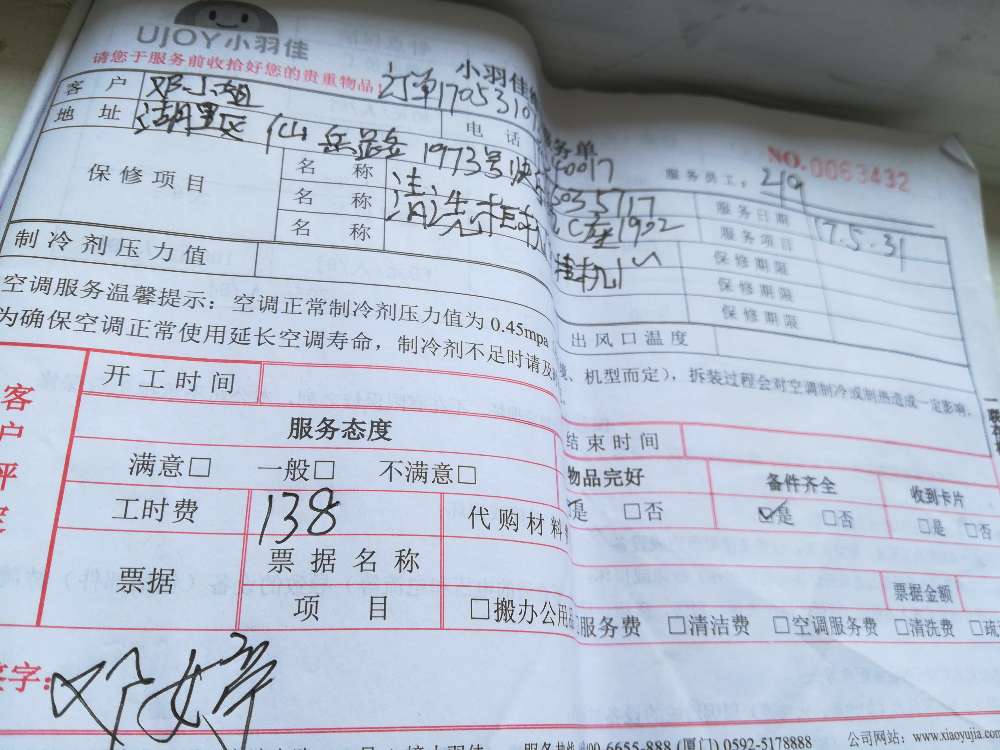 UJOY小羽佳
请您于服务前收拾好您的贵重物品!
小羽佳
务单
NO.0063432
客户 邓小姐 订单17053107
40017
服务员工: 219
地址 湖里区仙岳路1973号
电话
5035717
服务日期 17.5.31
C座1902
服务项目
保修项目
名称 清洗挂机
挂机
保修期限
名称
保修期限
名称
保修期限
制冷剂压力值
出风口温度
空调服务温馨提示:空调正常制冷剂压力值为0.45mpa
、机型而定),拆装过程会对空调制冷或制热造成一定影响。
为确保空调正常使用延长空调寿命,制冷剂不足时请及
开工时间
结束时间
客户评
服务态度
物品完好
备件齐全
收到卡片
满意□ 一般□ 不满意□
是 □否
☑是 □否
□是 □否
工时费 138
代购材料
票据
票据名称
票据金额
项目
□搬办公用品
服务费 □清洁费 □空调服务费 □清洗费 □疏
签字: 邓婷
00-6655-888 (厦门) 0592-5178888
公司网站: www.xiaoyujia.com